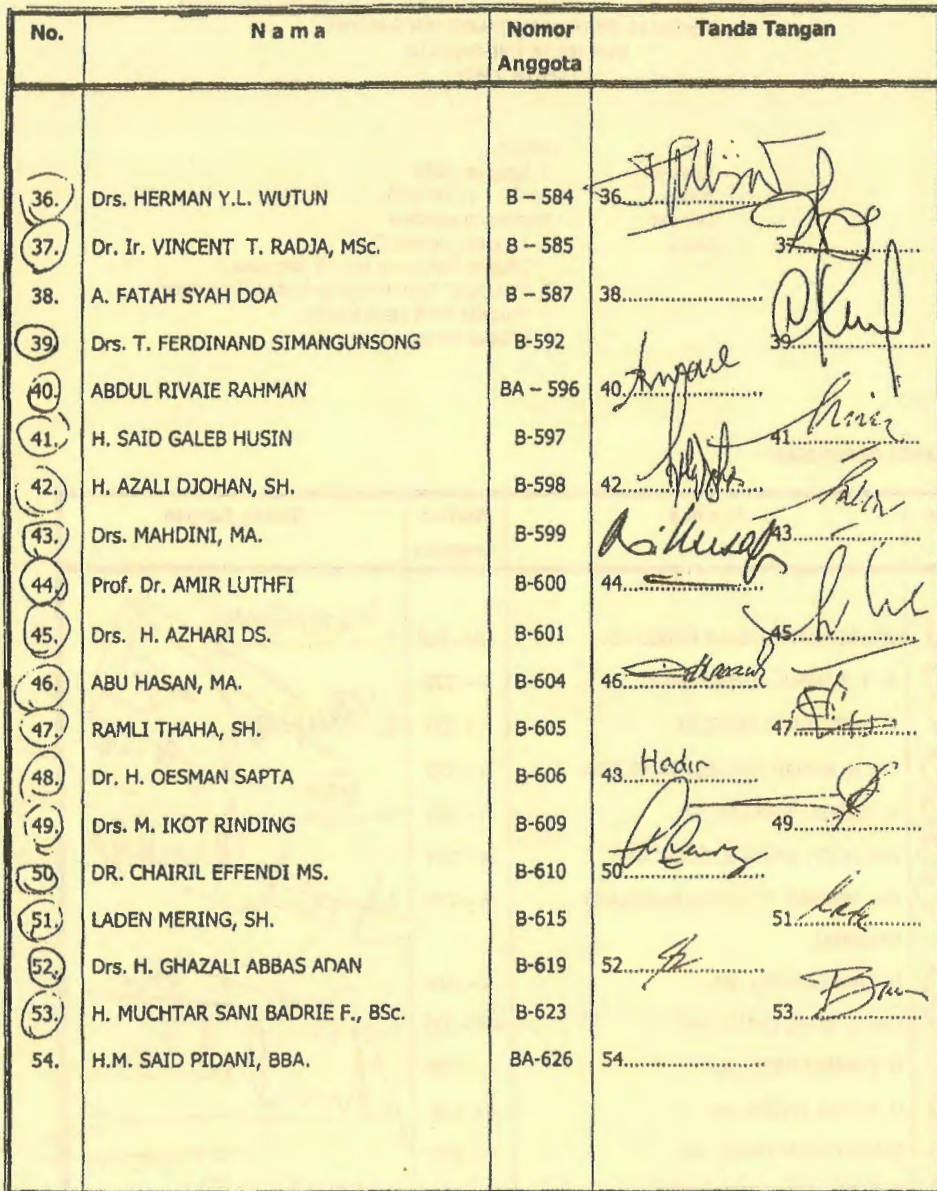 No. Nama Nomor Anggota Tanda Tangan
36. Drs. HERMAN Y.L. WUTUN B – 584 36
37. Dr. Ir. VINCENT T. RADJA, MSc. B – 585 37
38. A. FATAH SYAH DOA B – 587 38
39. Drs. T. FERDINAND SIMANGUNSONG B-592 39
40. ABDUL RIVAIE RAHMAN BA – 596 40
41. H. SAID GALEB HUSIN B-597 41
42. H. AZALI DJOHAN, SH. B-598 42
43. Drs. MAHDINI, MA. B-599 43
44. Prof. Dr. AMIR LUTHFI B-600 44
45. Drs. H. AZHARI DS. B-601 45
46. ABU HASAN, MA. B-604 46
47. RAMLI THAHA, SH. B-605 47
48. Dr. H. OESMAN SAPTA B-606 43 Hadir
49. Drs. M. IKOT RINDING B-609 49
50. DR. CHAIRIL EFFENDI MS. B-610 50
51. LADEN MERING, SH. B-615 51
52. Drs. H. GHAZALI ABBAS ADAN B-619 52
53. H. MUCHTAR SANI BADRIE F., BSc. B-623 53
54. H.M. SAID PIDANI, BBA. BA-626 54